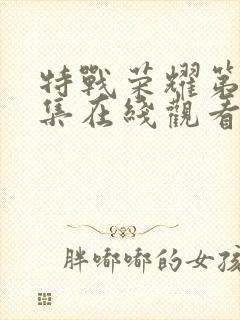 特戰荣耀第
集在綫觀看
胖嘟嘟的女孩